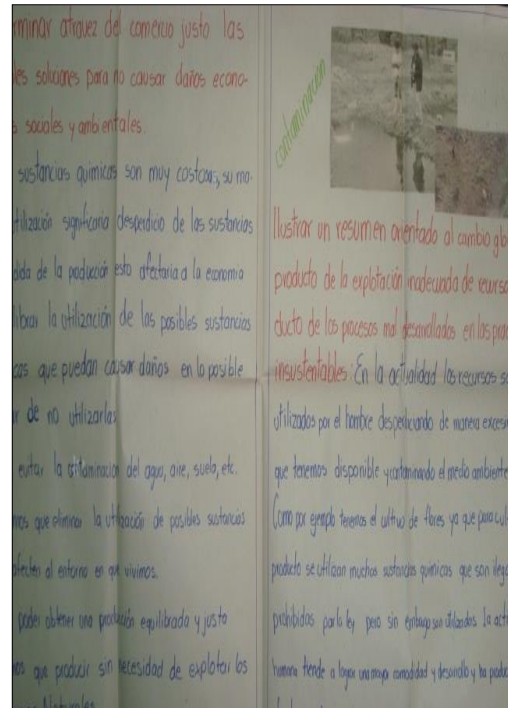 rminar atravez del comercio justo las
les soluciones para no causar daños econo-
s sociales y ambientales.
sustancias quimicas son muy costosas, su ma-
tilización significaria desperdicio de las sustancias
dida de la producción esto afectaria a la economia
librar la utilización de las posibles sustancias
cas que puedan causar daños en lo posible
r de no utilizarlas
evitar la contaminación del agua, aire, suelo, etc.
mos que eliminar la utilización de posibles sustancias
afecten al entorno en que vivimos.
poder obtener una producción equilibrada y justo
mos que producir sin necesidad de explotar los
Naturales
contaminación
Ilustrar un resumen orientado al cambio glob
producto de la explotación inadecuada de recurso
ducto de los procesos mal desarrollados en las prac
insustentables. En la actualidad los recursos so
utilizados por el hombre desperdiciando de manera excesi
que tenemos disponible y contaminando el medio ambiente
Como por ejemplo tenemos el cultivo de flores ya que para cul
producto se utilizan muchas sustancias quimicas que son ilega
prohibidas por la ley pero sin embargo son utilizados la acti
humana tiende a lograr una mayor comodidad y desarrollo y ha produc